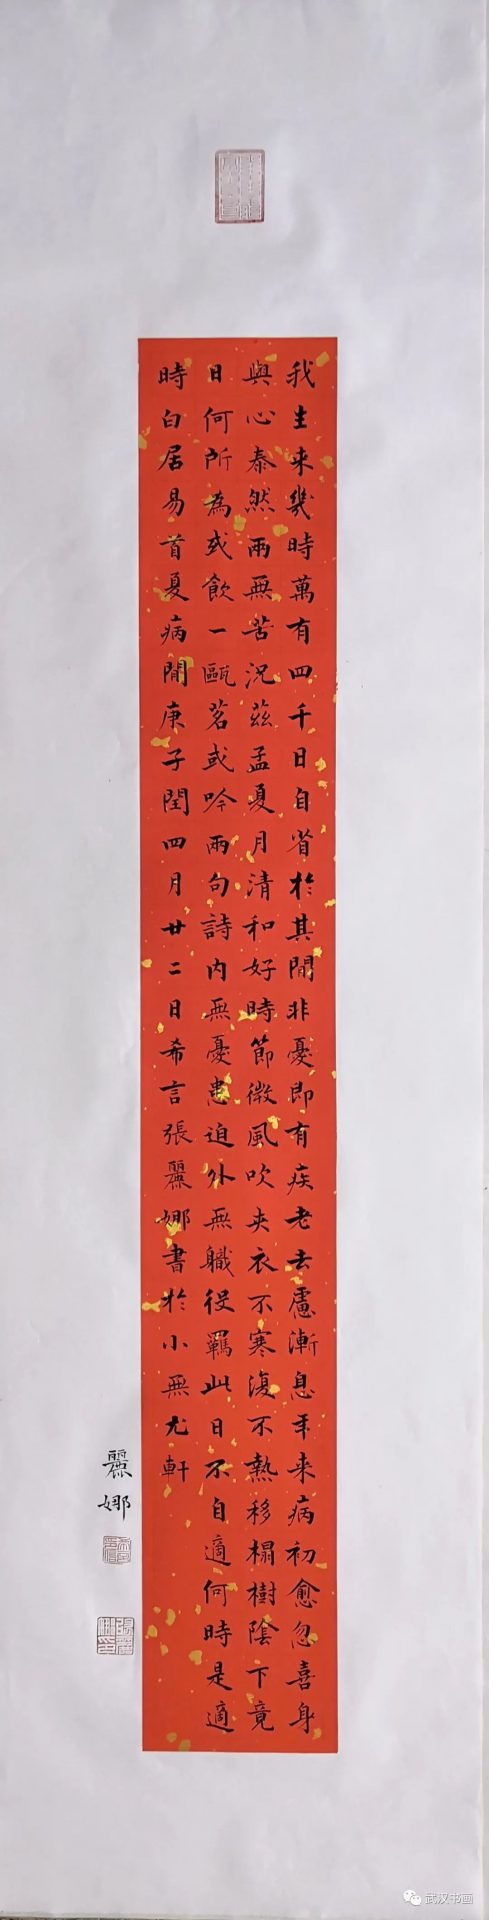 我生来幾時萬有四千日自省於其間非憂即有疾老去慮漸息年来病初愈忽喜身
與心泰然兩無苦況茲孟夏月清和好時節微風吹夾衣不寒復不熱移榻樹陰下竟
日何所為或飲一甌茗或吟兩句詩内無憂患迫外無職役羈此日不自適何時是適
時白居易首夏病間庚子閏四月廿二日希言張麗娜書於小無尤軒
麗娜
武汉书画